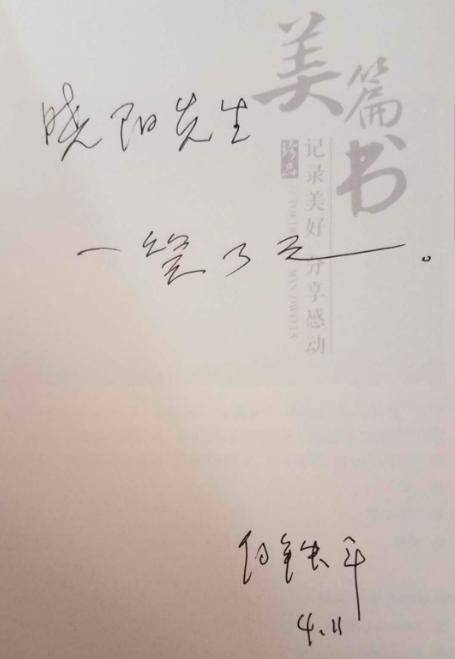 美篇书
记录美好 分享感动
晓阳先生
一笑了之。
铁平
4.11